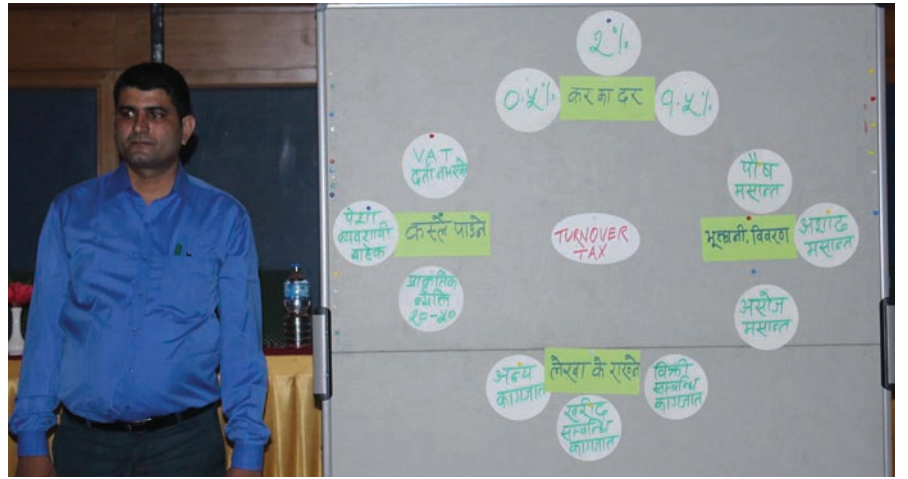 २%
०.५%
कर का दर
१.५%
VAT
दर्ता नभएको
पेशा
व्यवसायी
बाहेक
कस्ले पाउने
प्राकृतिक
व्यक्ति
२०-५०
TURNOVER
TAX
पौष
मसान्त
भूक्तानी, विवरण
अशाढ
मसान्त
असोज
मसान्त
लेखा के राख्ने
अन्य
कागजात
खरीद
सम्बन्धि
कागजात
विक्री
सम्बन्धि
कागजात